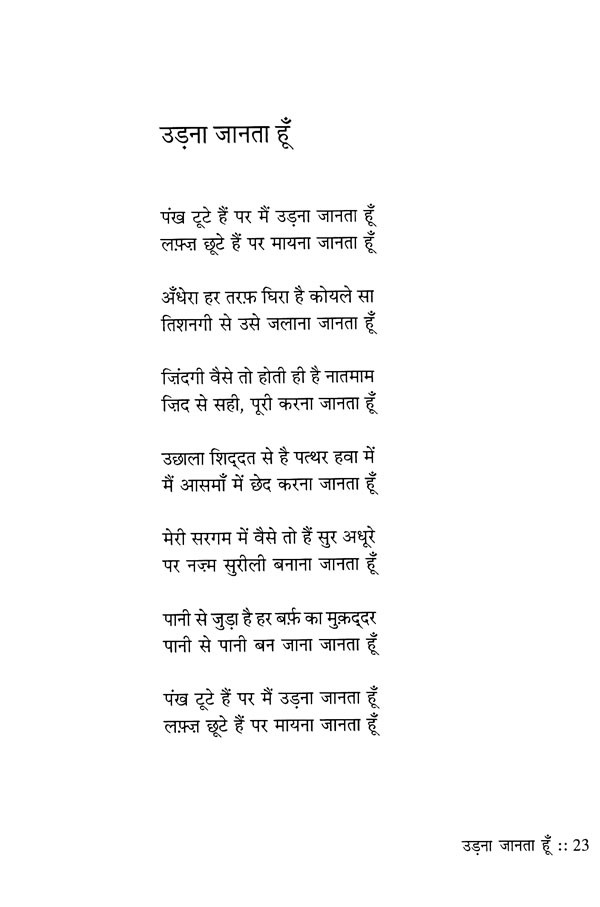 उड़ना जानता हूँ
पंख टूटे हैं पर मैं उड़ना जानता हूँ
लफ़्ज़ छूटे हैं पर मायना जानता हूँ
अँधेरा हर तरफ़ घिरा है कोयले सा
तिशनगी से उसे जलाना जानता हूँ
ज़िंदगी वैसे तो होती ही है नातमाम
ज़िद से सही, पूरी करना जानता हूँ
उछाला शिद्दत से है पत्थर हवा में
मैं आसमाँ में छेद करना जानता हूँ
मेरी सरगम में वैसे तो हैं सुर अधूरे
पर नज़्म सुरीली बनाना जानता हूँ
पानी से जुड़ा है हर बर्फ़ का मुक़द्दर
पानी से पानी बन जाना जानता हूँ
पंख टूटे हैं पर मैं उड़ना जानता हूँ
लफ़्ज़ छूटे हैं पर मायना जानता हूँ
उड़ना जानता हूँ :: 23